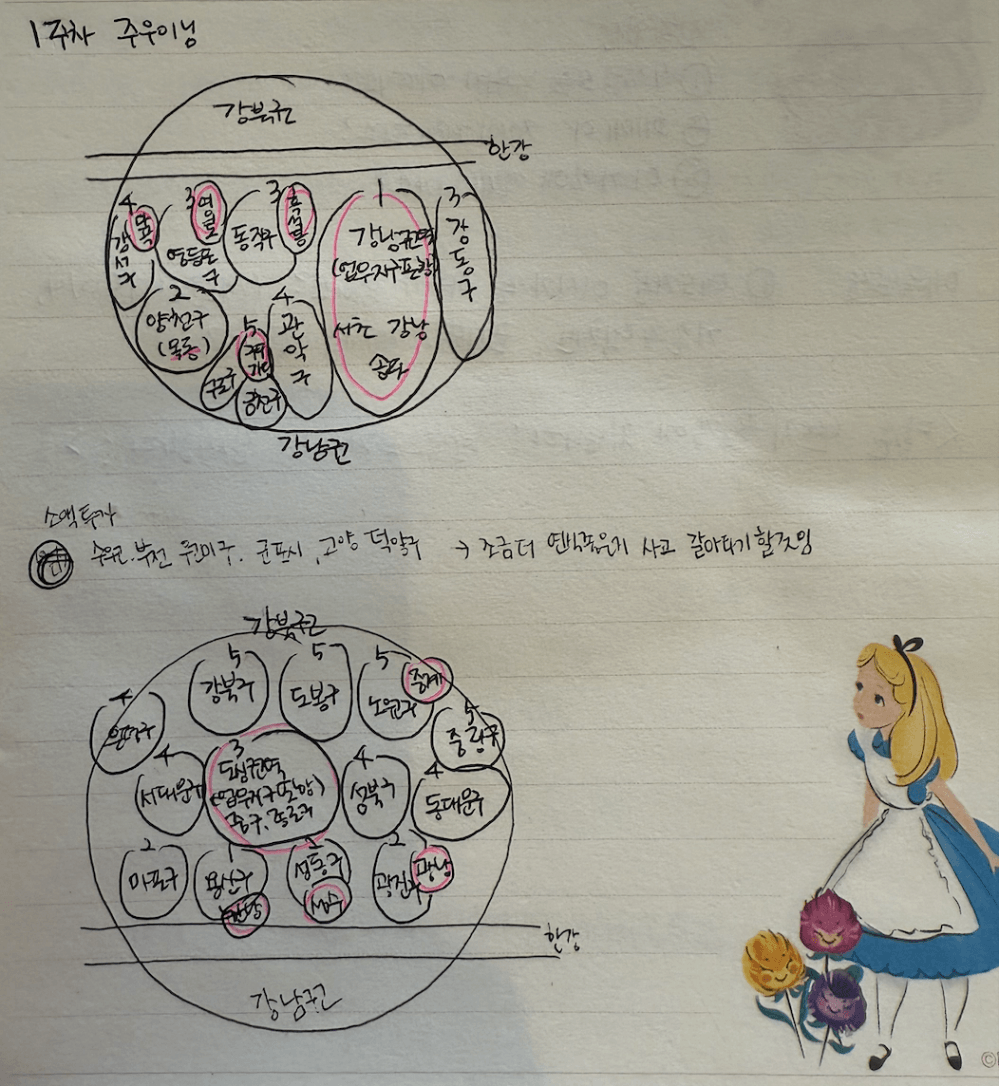 1주차 주우이님
강북권
한강
4 강서구 마곡
3 영등포구 여의도
3 동작구 흑석동
1 강남권역
(업무지구포함)
서초 강남
송파
3 강동구
2 양천구
(목동)
5
구로구
금천구
4 관악구
강남권
소액투자
수원.부천 원미구. 군포시, 고양 덕양구 → 조금더 사고 갈아타기할것임
강북권
5 강북구
5 도봉구
5 노원구 중계
4 은평구
5 중랑구
4 서대문구
3 도심권역
(업무지구포함)
중구.종로구
4 성북구
4 동대문구
2 마포구
1 용산구
2 성동구
성수
2 광진구 광남
한강
강남권